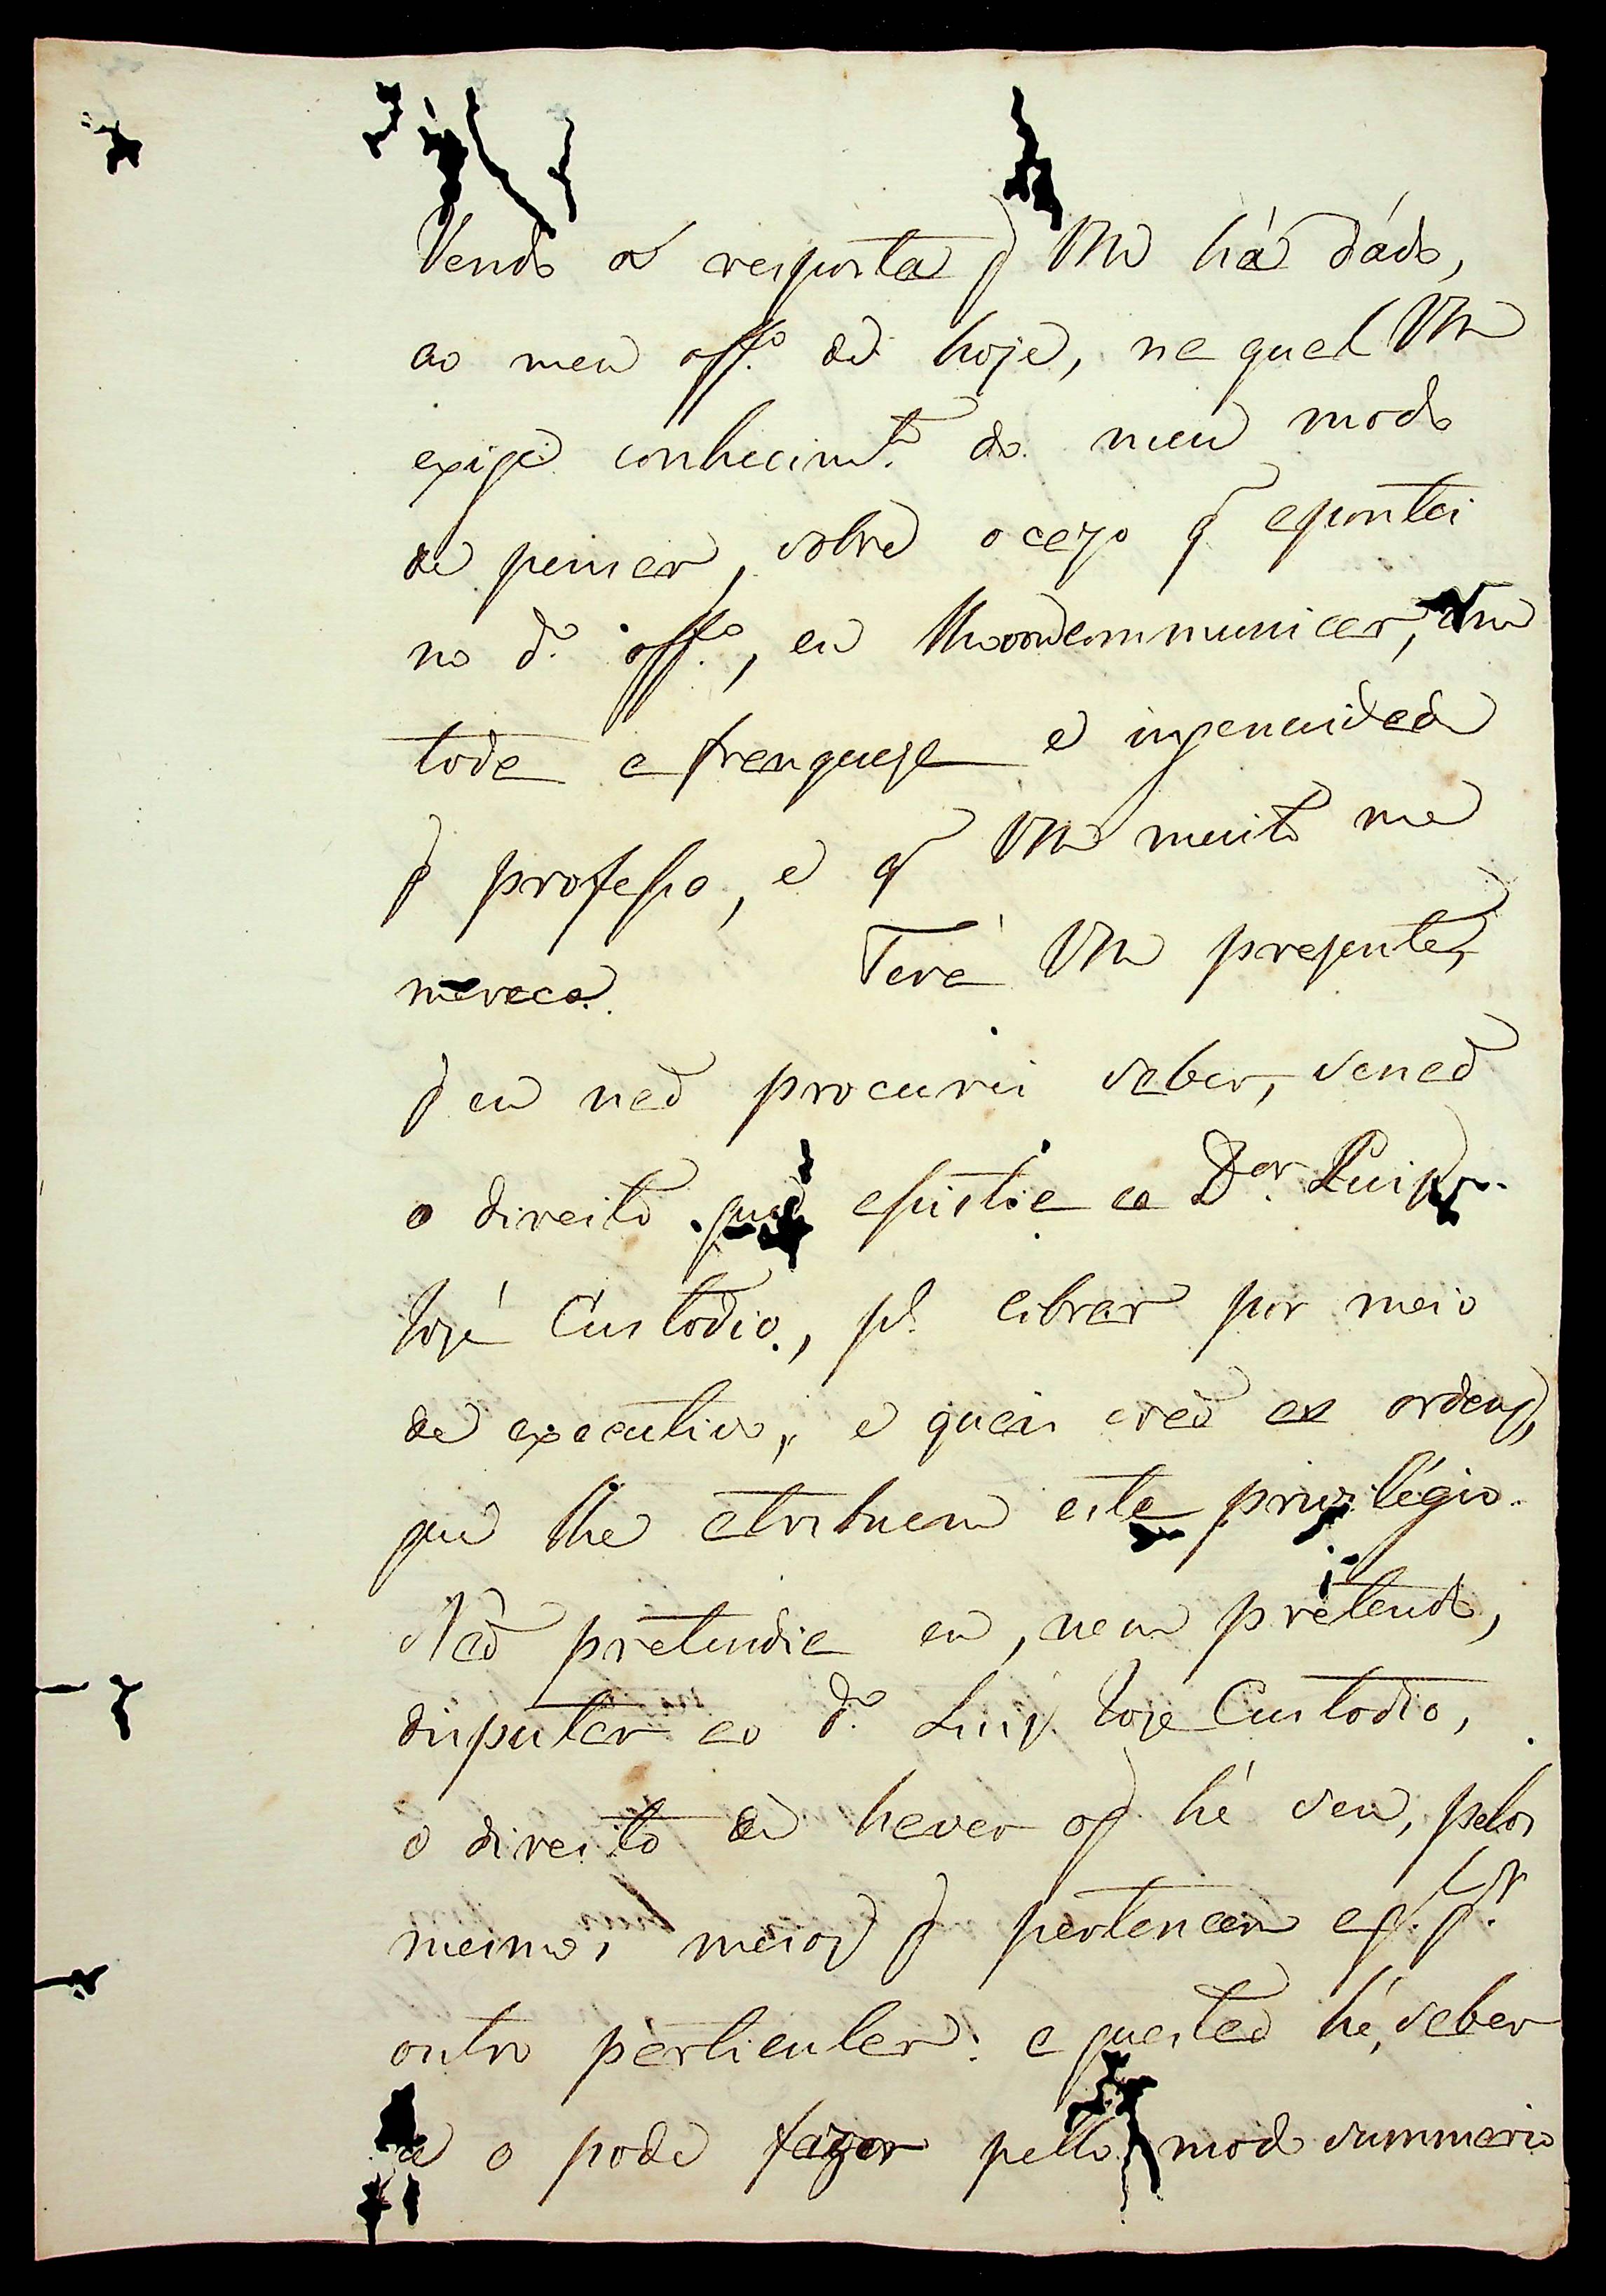 Vendo a resposta q̃ Vm há dádo,
ao meu off.º de hoje, na qual Vm
exige conhecim.to do meu modo
de pensar, sobre o cazo q̃ apontei
no d.º off.º, eu lho vou communicar, com
toda a franqueza e ingenuidade
q̃ professo, e q̃ Vm muito me
merece. Terá Vm prezente,
q̃ eu naõ procurei saber, senaõ
o direito que assistia ao D.or Luiz
Jozé Custodio, p.ª cobrar por meio
de executivo, e quais eraõ as ordens,
que lhe atribuem este privilégio.
Naõ pretendia eu, nem pretendo,
disputar ao d.º Luiz Jozé Custodio,
o direito de haver oq̃ hé seu, pelos
mesmos meios q̃ pertencem a q. q.r
outro particular: a questaõ hé, saber
se o pode fazer pello modo summario